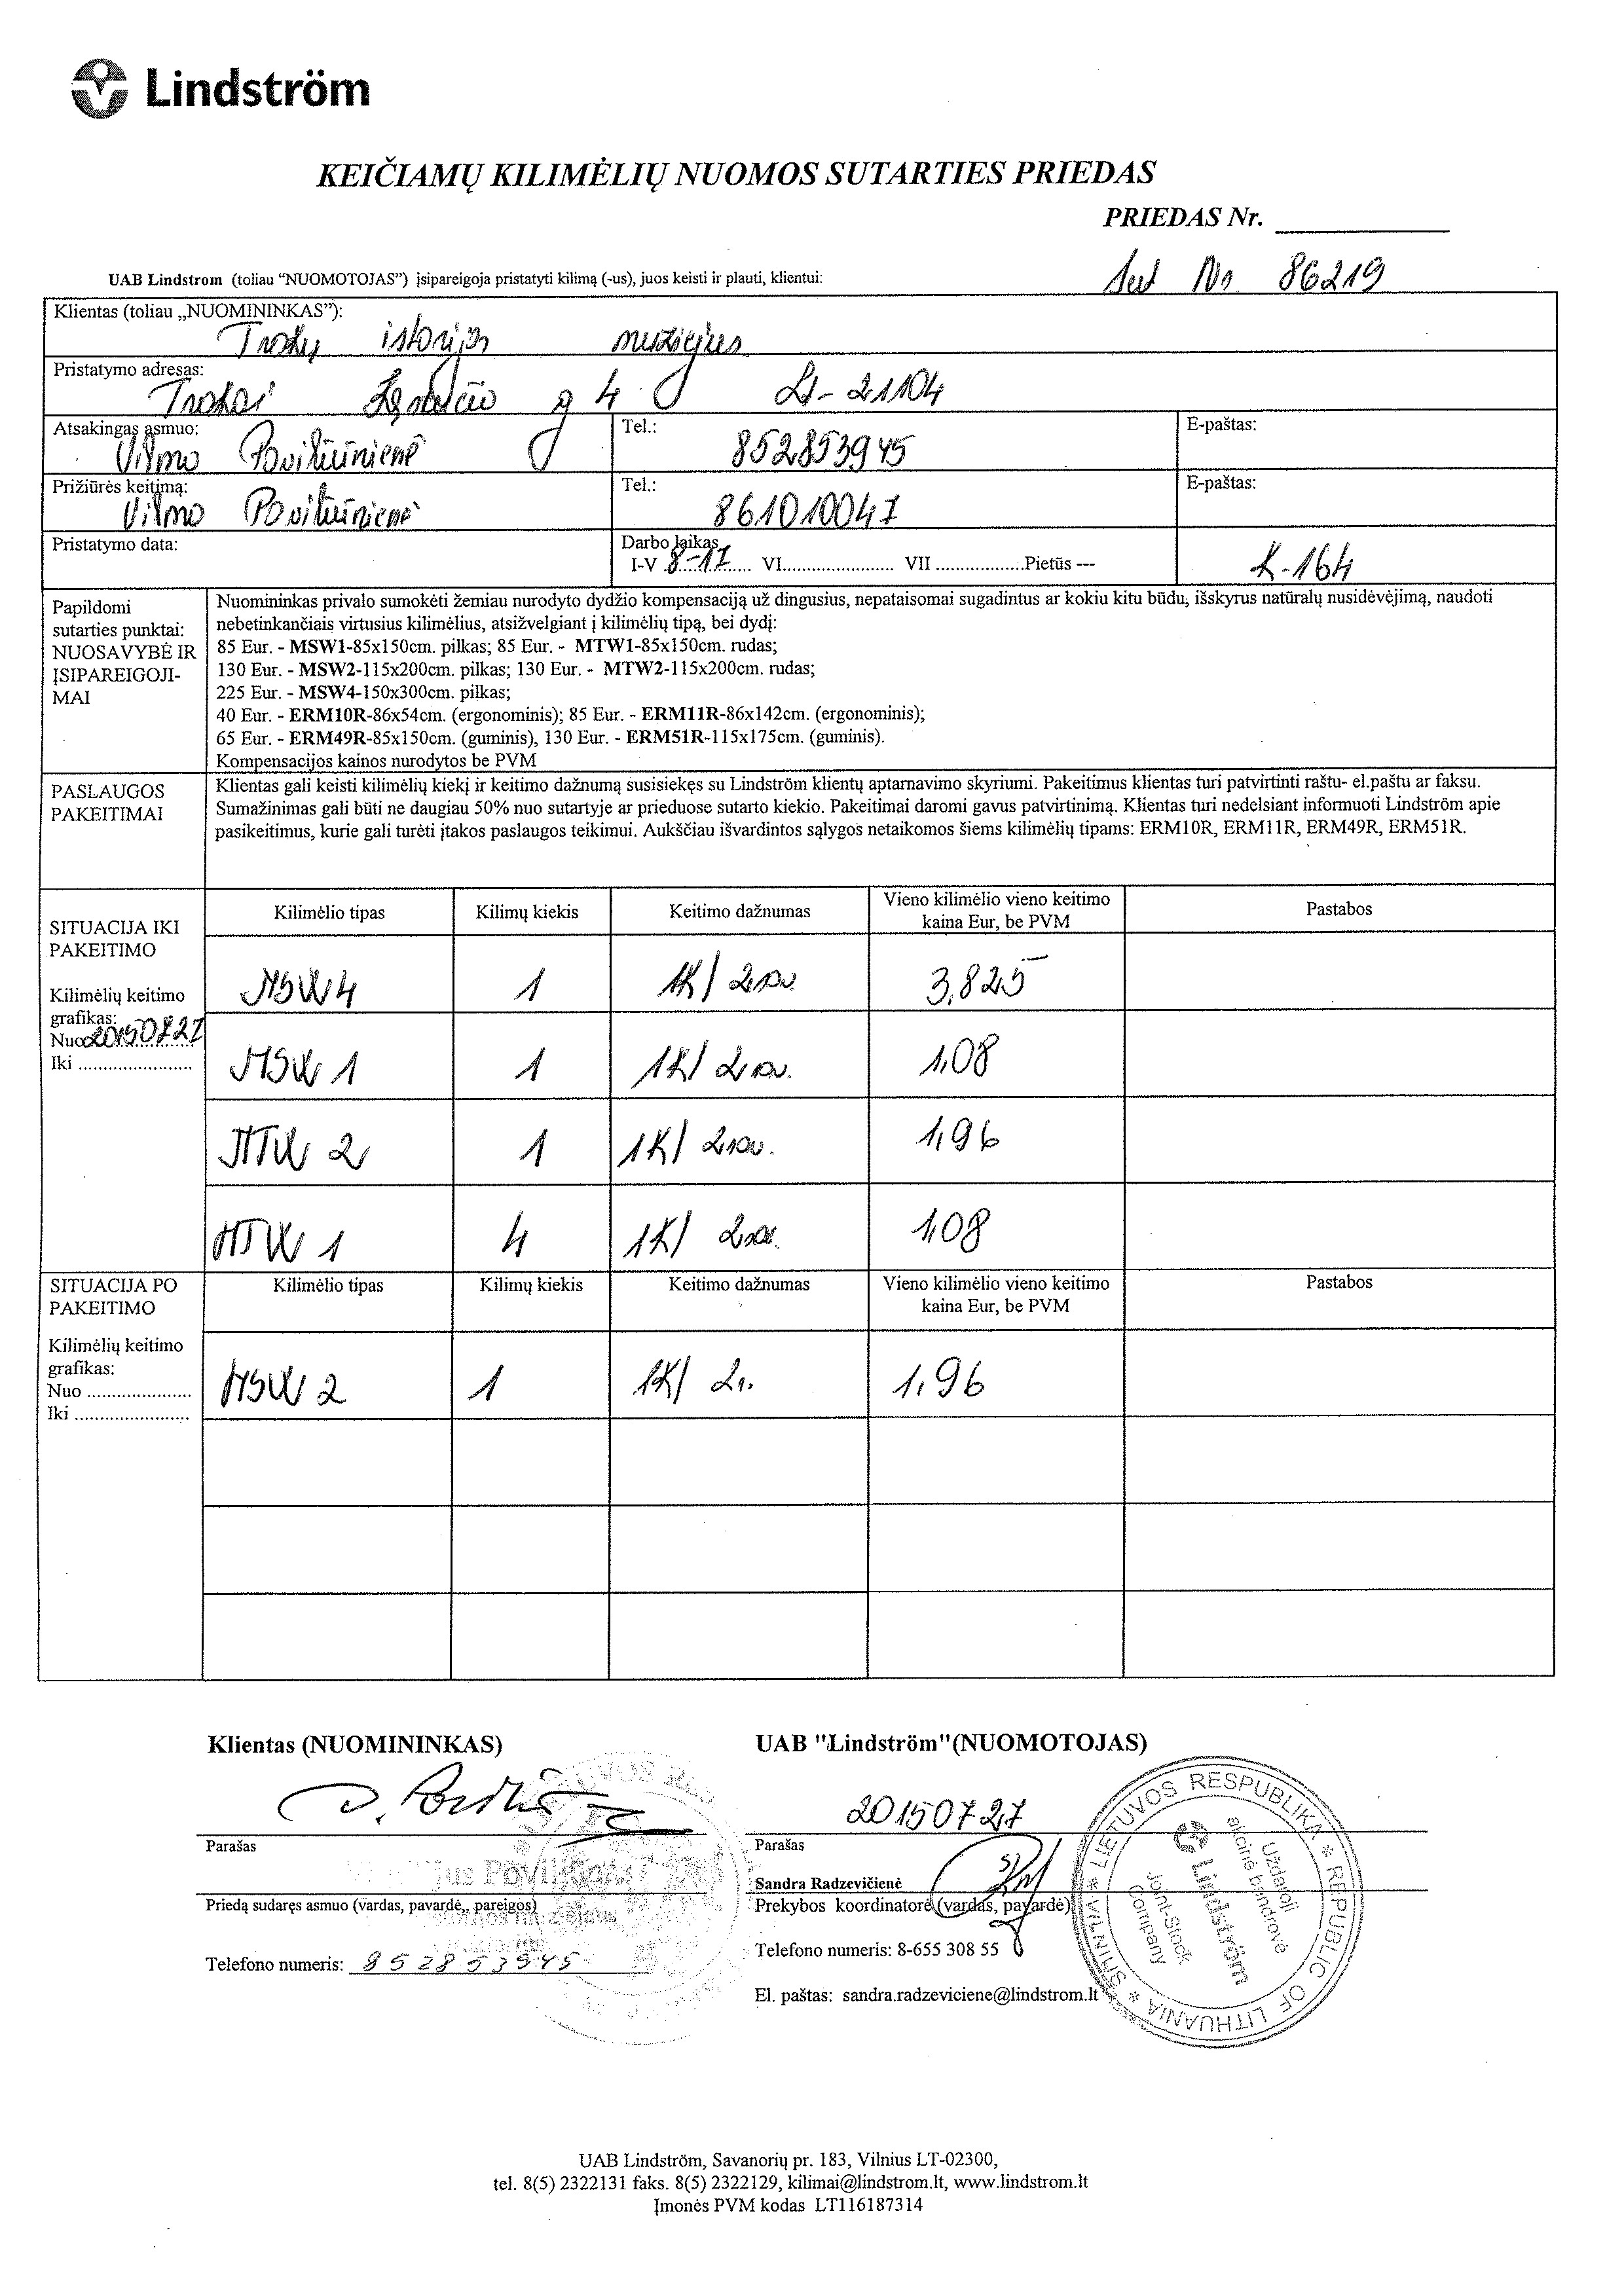 Lindström
KEIČIAMŲ KILIMĖLIŲ NUOMOS SUTARTIES PRIEDAS
PRIEDAS Nr. ____________
UAB Lindstrom (toliau “NUOMOTOJAS”) įsipareigoja pristatyti kilimą (-us), juos keisti ir plauti, klientui:
Sut Nr. 86219
Klientas (toliau „NUOMININKAS”):
Trakų istorijos muziejus
Pristatymo adresas:
Trakai Kęstučio g 4 Lt-21104
Atsakingas asmuo: Tel.: E-paštas:
Vilma Poviliūnienė 852853945
Prižiūrės keitimą: Tel.: E-paštas:
Vilma Poviliūnienė 861010047
Pristatymo data: Darbo laikas
I-V 8-17 VI...................... VII ..................Pietūs --- K-164
Papildomi sutarties punktai: NUOSAVYBĖ IR ĮSIPAREIGOJI-MAI
Nuomininkas privalo sumokėti žemiau nurodyto dydžio kompensaciją už dingusius, nepataisomai sugadintus ar kokiu kitu būdu, išskyrus natūralų nusidėvėjimą, naudoti
nebetinkančiais virtusius kilimėlius, atsižvelgiant į kilimėlių tipą, bei dydį:
85 Eur. - MSW1-85x150cm. pilkas; 85 Eur. - MTW1-85x150cm. rudas;
130 Eur. - MSW2-115x200cm. pilkas; 130 Eur. - MTW2-115x200cm. rudas;
225 Eur. - MSW4-150x300cm. pilkas;
40 Eur. - ERM10R-86x54cm. (ergonominis); 85 Eur. - ERM11R-86x142cm. (ergonominis);
65 Eur. - ERM49R-85x150cm. (guminis), 130 Eur. - ERM51R-115x175cm. (guminis).
Kompensacijos kainos nurodytos be PVM
PASLAUGOS PAKEITIMAI
Klientas gali keisti kilimėlių kiekį ir keitimo dažnumą susisiekęs su Lindström klientų aptarnavimo skyriumi. Pakeitimus klientas turi patvirtinti raštu- el.paštu ar faksu.
Sumažinimas gali būti ne daugiau 50% nuo sutartyje ar prieduose sutarto kiekio. Pakeitimai daromi gavus patvirtinimą. Klientas turi nedelsiant informuoti Lindström apie
pasikeitimus, kurie gali turėti įtakos paslaugos teikimui. Aukščiau išvardintos sąlygos netaikomos šiems kilimėlių tipams: ERM10R, ERM11R, ERM49R, ERM51R.
SITUACIJA IKI PAKEITIMO
Kilimėlių keitimo grafikas:
Nuo 20150727
Iki .......................
Kilimėlio tipas Kilimų kiekis Keitimo dažnumas Vieno kilimėlio vieno keitimo kaina Eur, be PVM Pastabos
MSW4 1 1K/ 2 sav. 3,825
MSW 1 1 1K/ 2 sav. 1,08
MTW 2 1 1K/ 2 sav. 1,96
MTW 1 4 1K/ 2 sav. 1,08
SITUACIJA PO PAKEITIMO
Kilimėlių keitimo grafikas:
Nuo .....................
Iki .......................
Kilimėlio tipas Kilimų kiekis Keitimo dažnumas Vieno kilimėlio vieno keitimo kaina Eur, be PVM Pastabos
MSW 2 1 1K/ 2s. 1,96
Klientas (NUOMININKAS) UAB "Lindström"(NUOMOTOJAS)
20150727
Parašas Parašas
Sandra Radzevičienė
Priedą sudaręs asmuo (vardas, pavardė,, pareigos) Prekybos koordinatorė (vardas, pavardė)
Telefono numeris: 852853945 Telefono numeris: 8-655 308 55
El. paštas: sandra.radzeviciene@lindstrom.lt
LIETUVOS RESPUBLIKA * REPUBLIC OF LITHUANIA * VILNIUS *
Uždaroji akcinė bendrovė
Lindström
Joint-Stock Company
UAB Lindström, Savanorių pr. 183, Vilnius LT-02300,
tel. 8(5) 2322131 faks. 8(5) 2322129, kilimai@lindstrom.lt, www.lindstrom.lt
Įmonės PVM kodas LT116187314